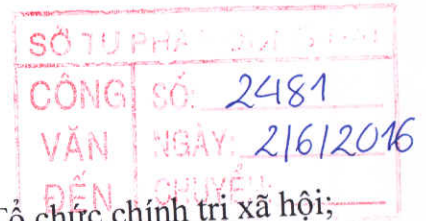 SỞ TƯ PHÁP
CÔNG VĂN ĐẾN
SỐ: 2481
NGÀY: 2/6/2016
CHUYỂN:
Tổ chức chính trị xã hội;